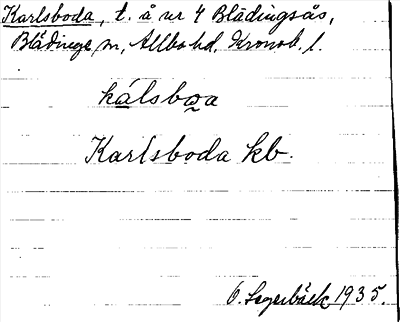 Karlsboda, t. å nr 4 Blädingsås,
Blädinge sn, Allbo hd. Kronob. l.
kálsbωa
Karlsboda kb.
O. Lagerbäck 1935.